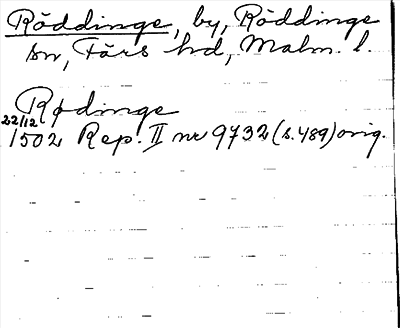 Röddinge, by, Röddinge
sn, Färs hd, Malm. l.
Rødinge
22/12
1502 Rep. II nr 9732 (s. 489) orig.